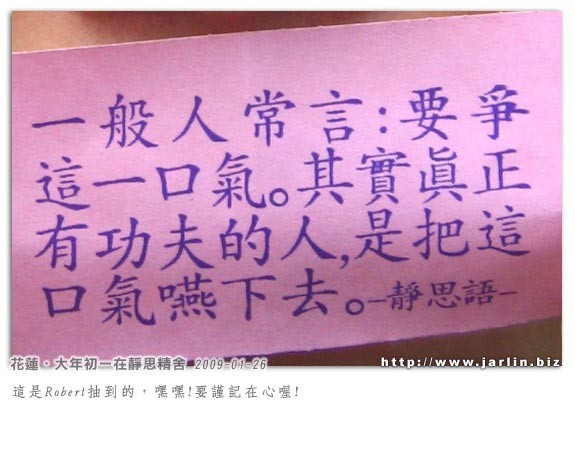 一般人常言:要爭
這一口氣。其實真正
有功夫的人,是把這
口氣嚥下去。–靜思語–
花蓮‧大年初一在靜思精舍 2009-01-26
http://www.jarlin.biz
這是Robert抽到的，嘿嘿!要謹記在心喔!